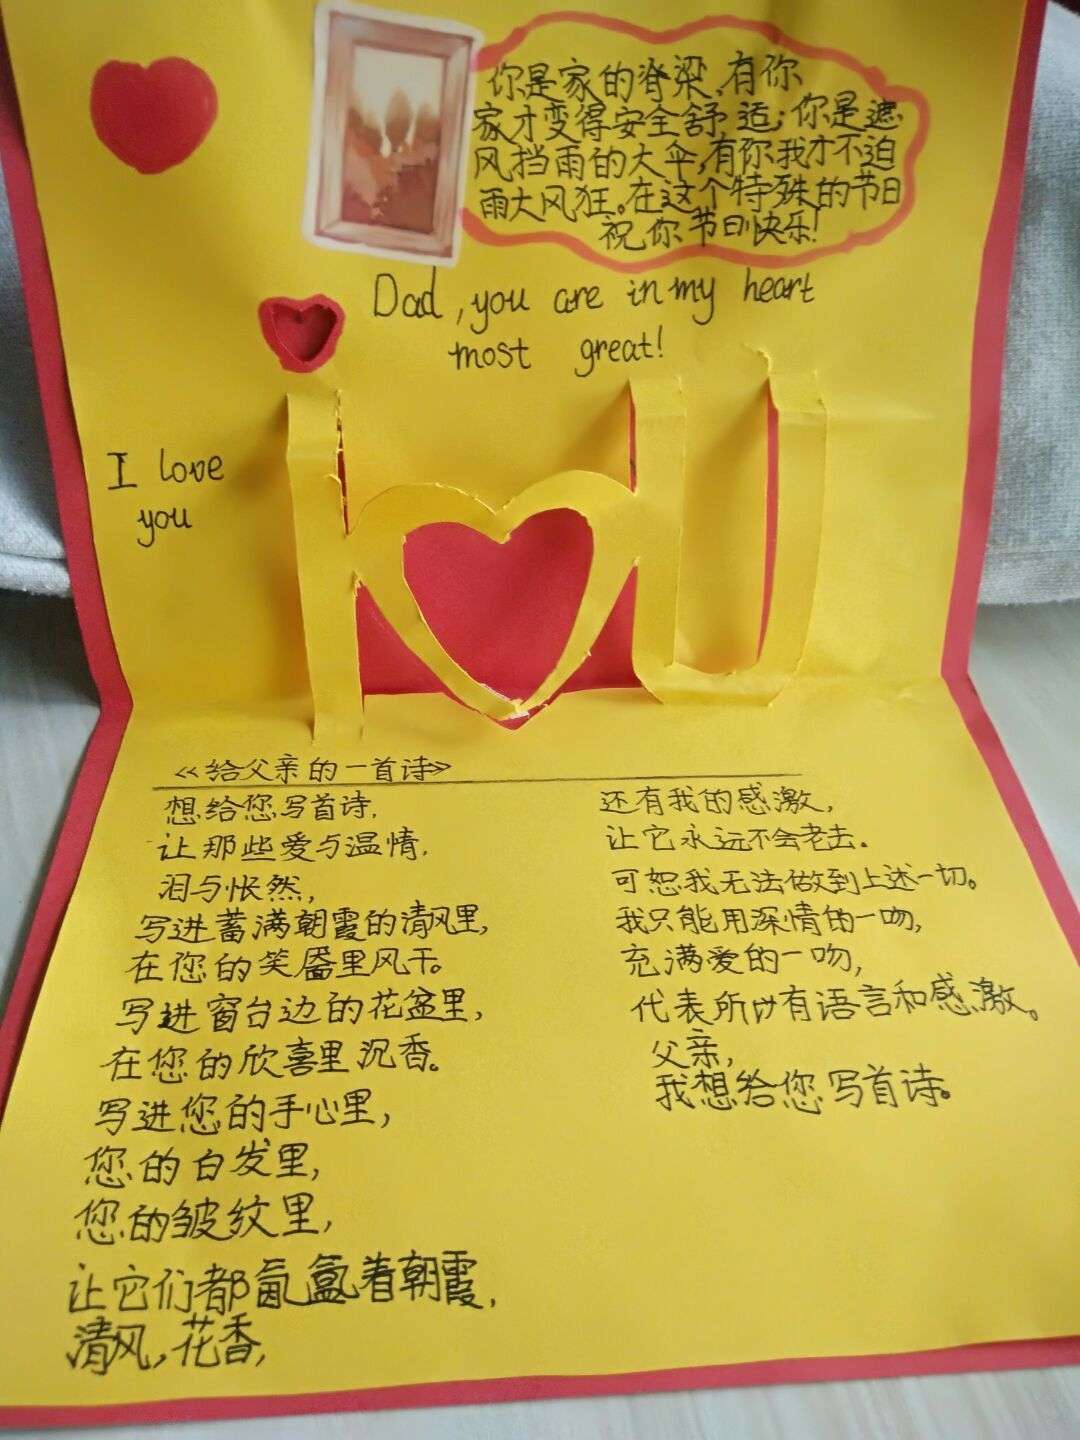 你是家的脊梁,有你
家才变得安全舒适;你是遮
风挡雨的大伞,有你我才不迫
雨大风狂。在这个特殊的节日
祝你节日快乐!
Dad, you are in my heart
most great!
I love
you
《给父亲的一首诗》
想给您写首诗,
让那些爱与温情,
泪与怅然,
写进蓄满朝霞的清风里,
在您的笑靥里风干。
写进窗台边的花盆里,
在您的欣喜里沉香。
写进您的手心里,
您的白发里,
您的皱纹里,
让它们都氤氲着朝霞,
清风,花香,
还有我的感激,
让它永远不会老去.
可恕我无法做到上述一切。
我只能用深情的一吻,
充满爱的一吻,
代表所以有语言和感激。
父亲,
我想给您写首诗。